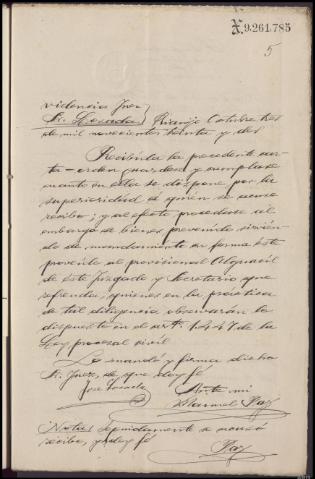 X.9.261.785
5
videncia Juez
Sr. Losada Naranjo Octubre tres
de mil novecientos treinta y dos
Recibida la precedente car-
ta-orden guardese y cumplase
cuanto en esta se dispone por la
superioridad á quien se acuse
recibo; y al efecto procedase al
embargo de bienes prevenido sirvien-
do de mandamiento en forma este
proveido al provisional Alguacil
de este Juzgado y Secretario que
refrenda, quienes en la práctica
de tal diligencia observarán lo
dispuesto en el artº 1447 de la
Ley procesal civil
Lo mandó y firma dicho
Sr. Juez, de que doy fé
Jose Losada Ante mi
Manuel Paz
Nota: Seguidamente se acusó
recibo, y doy fé
Paz